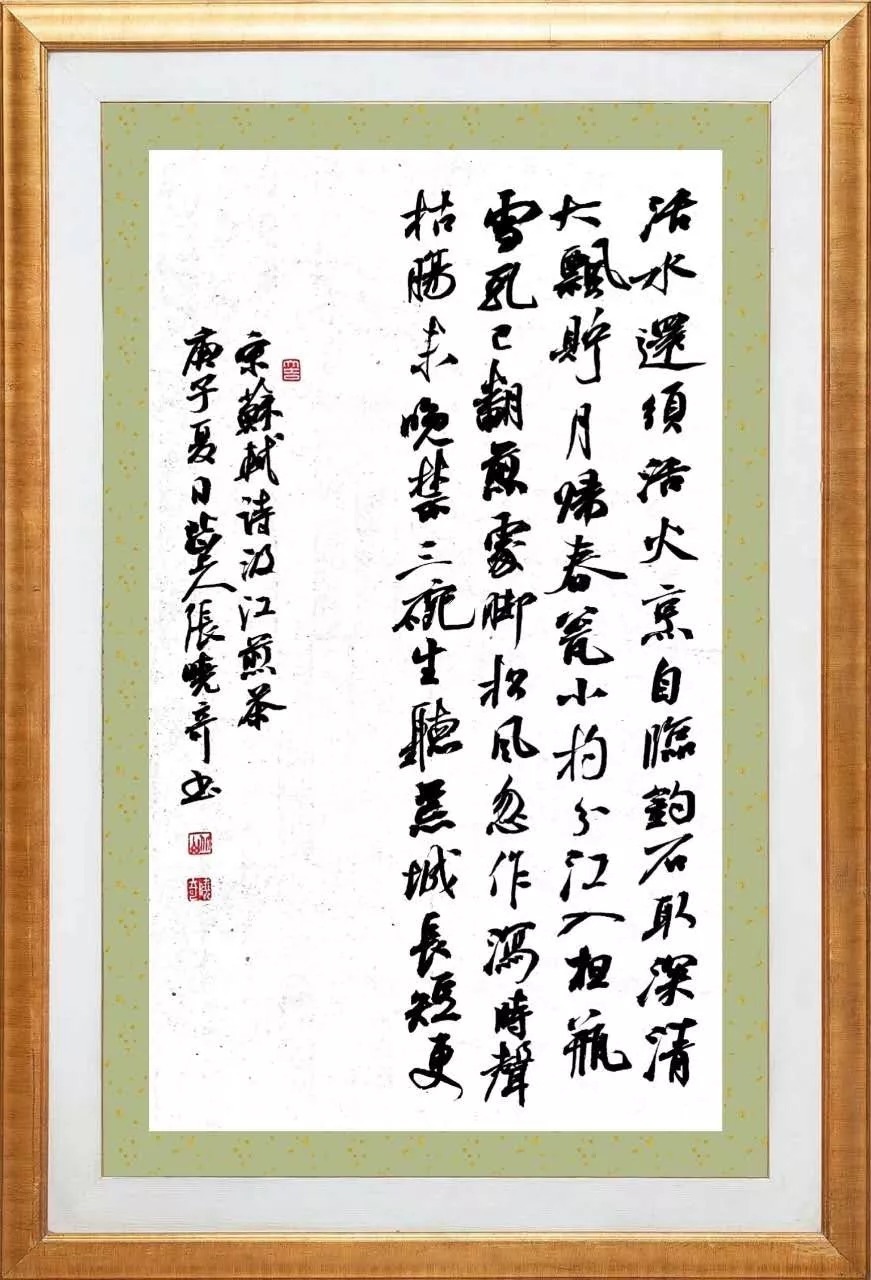 活水還須活火烹自臨釣石取深清
大飄貯月歸春瓮小杓分江入担瓶
雪乳已翻煎處脚松風忽作瀉時聲
枯腸未晚禁三碗生聽荒城長短更
宋蘇軾詩汲江煎茶
庚子夏日人張曉奇书